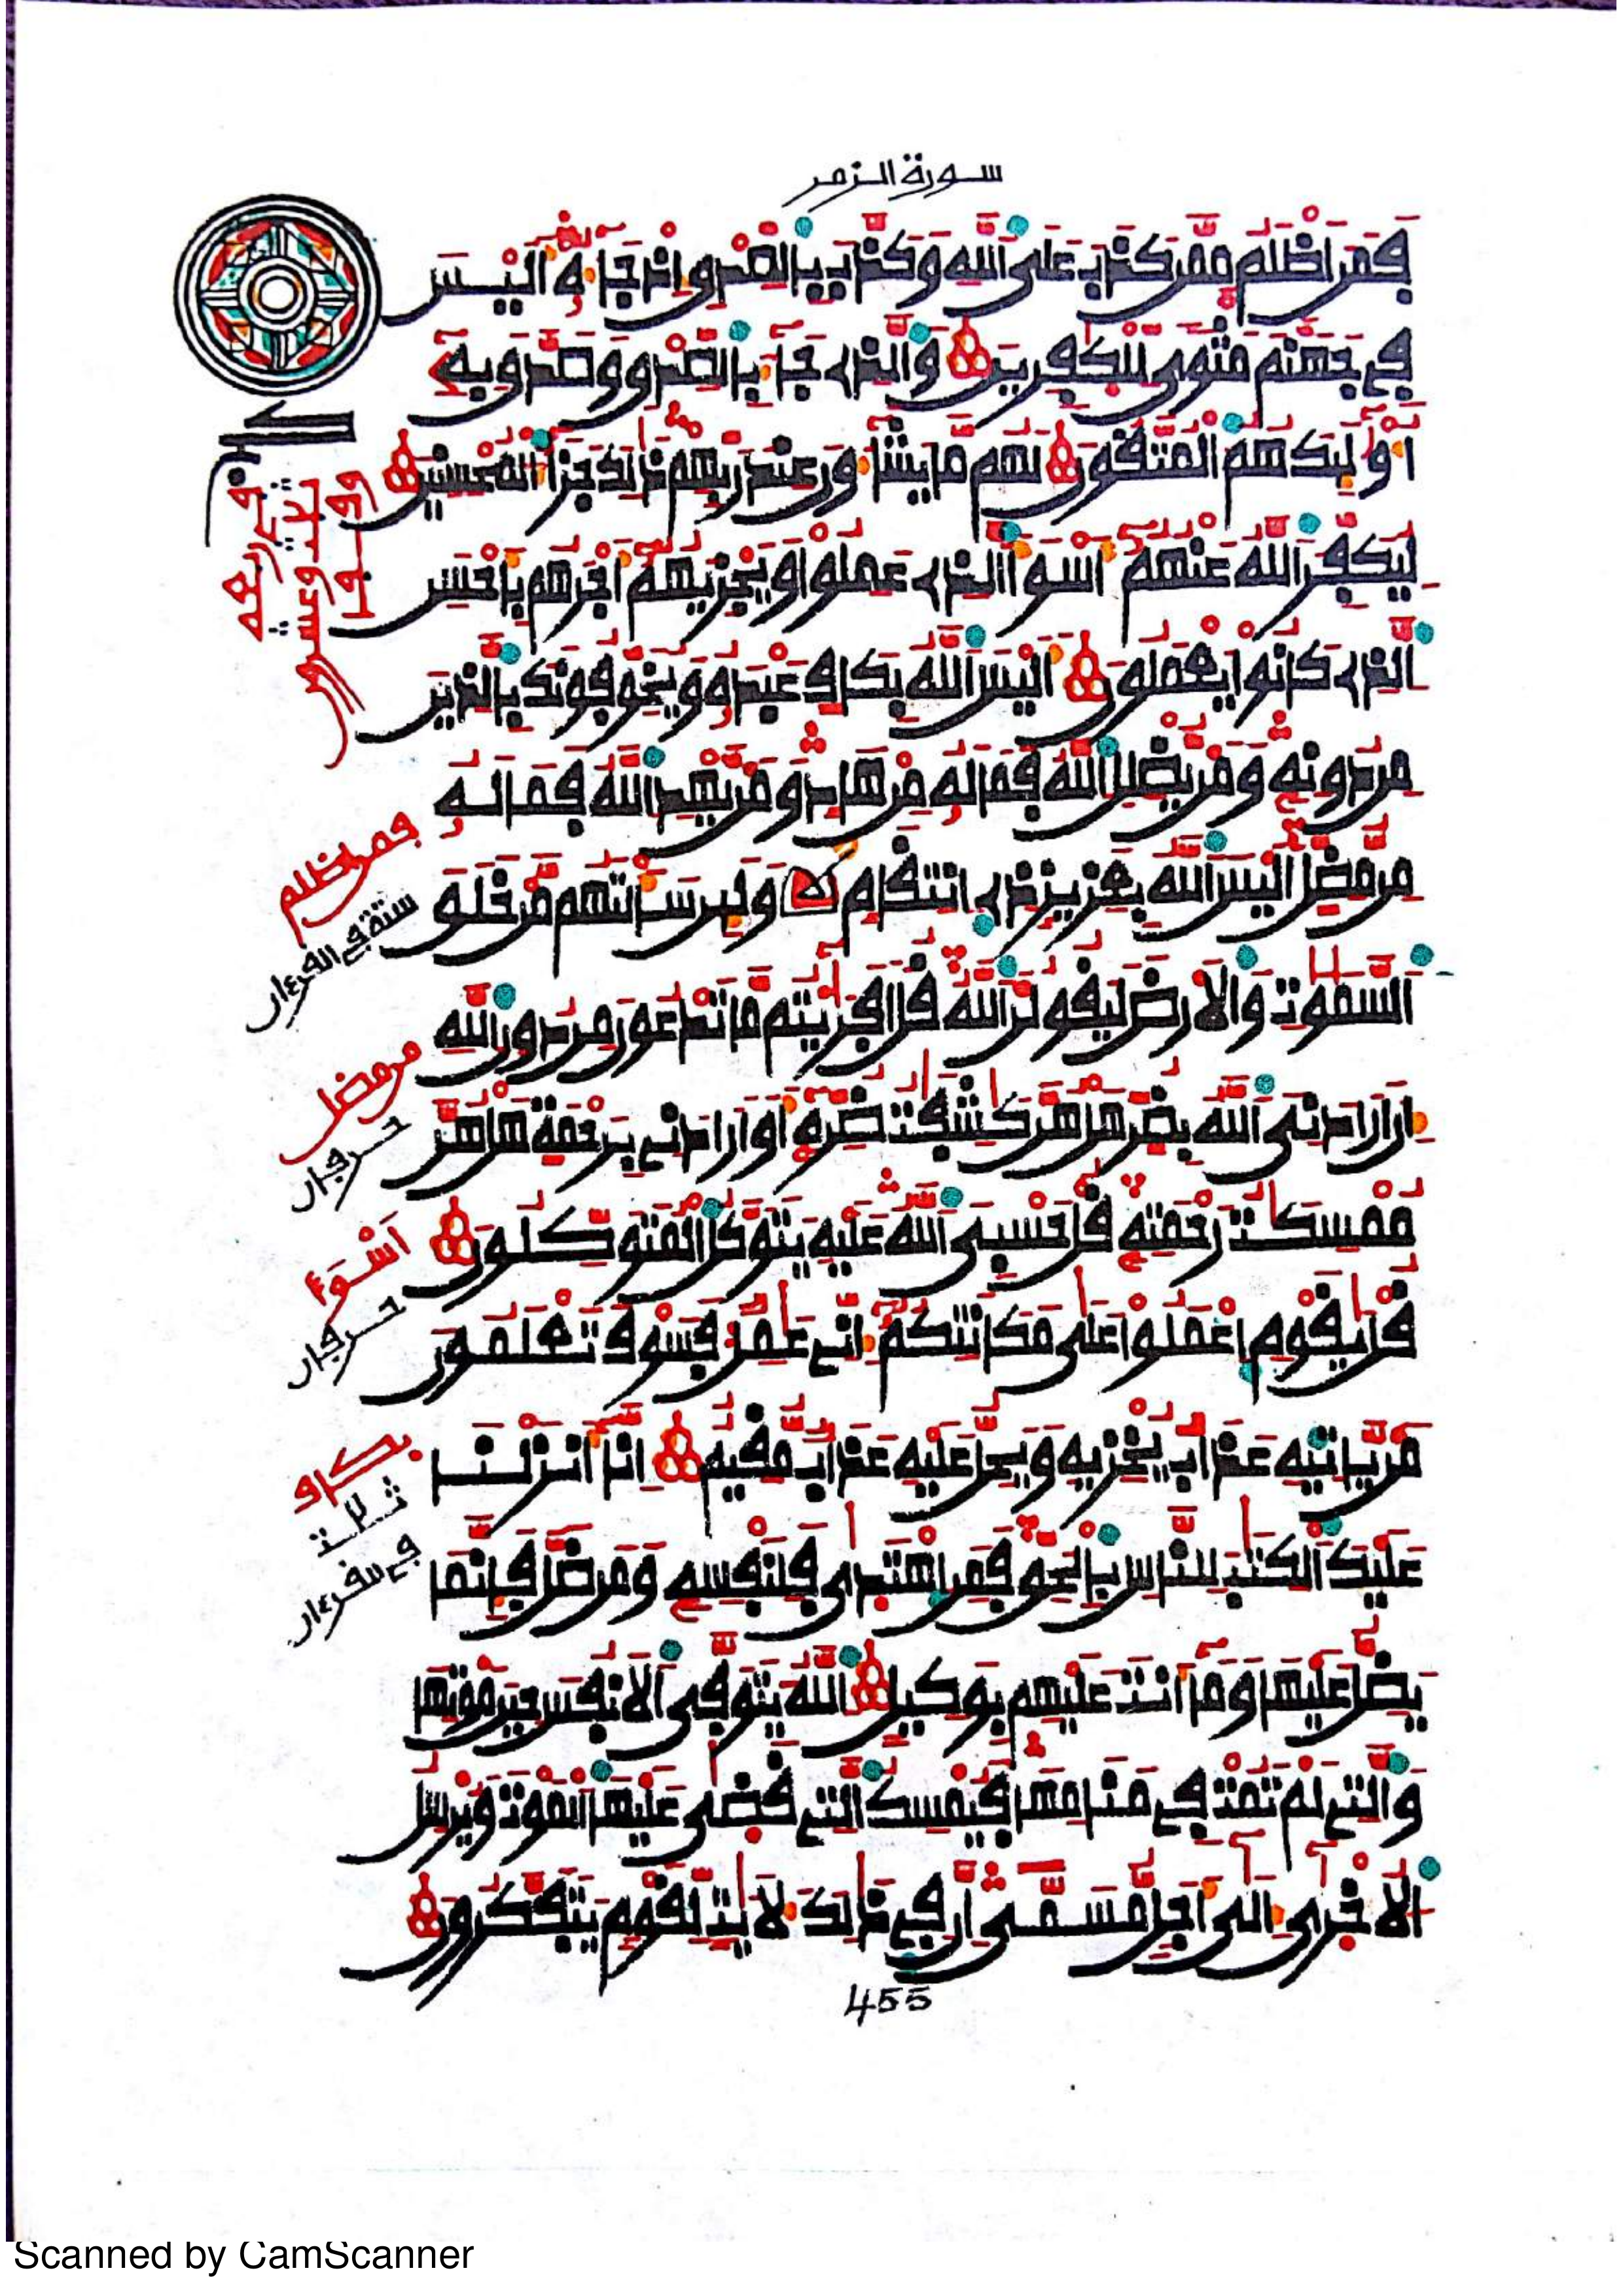 سورة الزمر
فمن اظلم ممن كذب على الله وكذب بالصدق اذ جاءه اليس
في جهنم مثوى للكفرين والذي جاء بالصدق وصدق به
أوليك هم المتقون لهم ما يشاءون عند ربهم ذلك جزاء المحسنين
ليكفر الله عنهم أسوأ الذي عملوا ويجزيهم أجرهم بأحسن
الذي كانوا يعملون أليس الله بكاف عبده ويخوفونك بالذين
من دونه ومن يضلل الله فما له من هاد ومن يهد الله فما له
من مضل أليس الله بعزيز ذي انتقام ولين سألتهم من خلق
السموت والأرض ليقولن الله قل أفرءيتم ما تدعون من دون الله
إن أرادني الله بضر هل هن كشفت ضره أو أرادني برحمة هل هن
ممسكت رحمته قل حسبي الله عليه يتوكل المتوكلون
قل يقوم اعملوا على مكانتكم إني عمل فسوف تعلمون
من يأتيه عذاب يخزيه ويحل عليه عذاب مقيم إنا أنزلنا
عليك الكتب للناس بالحق فمن اهتدى فلنفسه ومن ضل فإنما
يضل عليها وما أنت عليهم بوكيل الله يتوفى الأنفس حين موتها
والتي لم تمت في منامها فيمسك التي قضى عليها الموت ويرسل
الأخرى إلى أجل مسمى إن في ذلك لأيت لقوم يتفكرون
فمن اظلم
ستة في القرءان
من مضل
حرفان
أسوء
حرفان
بكاف
ثلت
455
Scanned by CamScanner